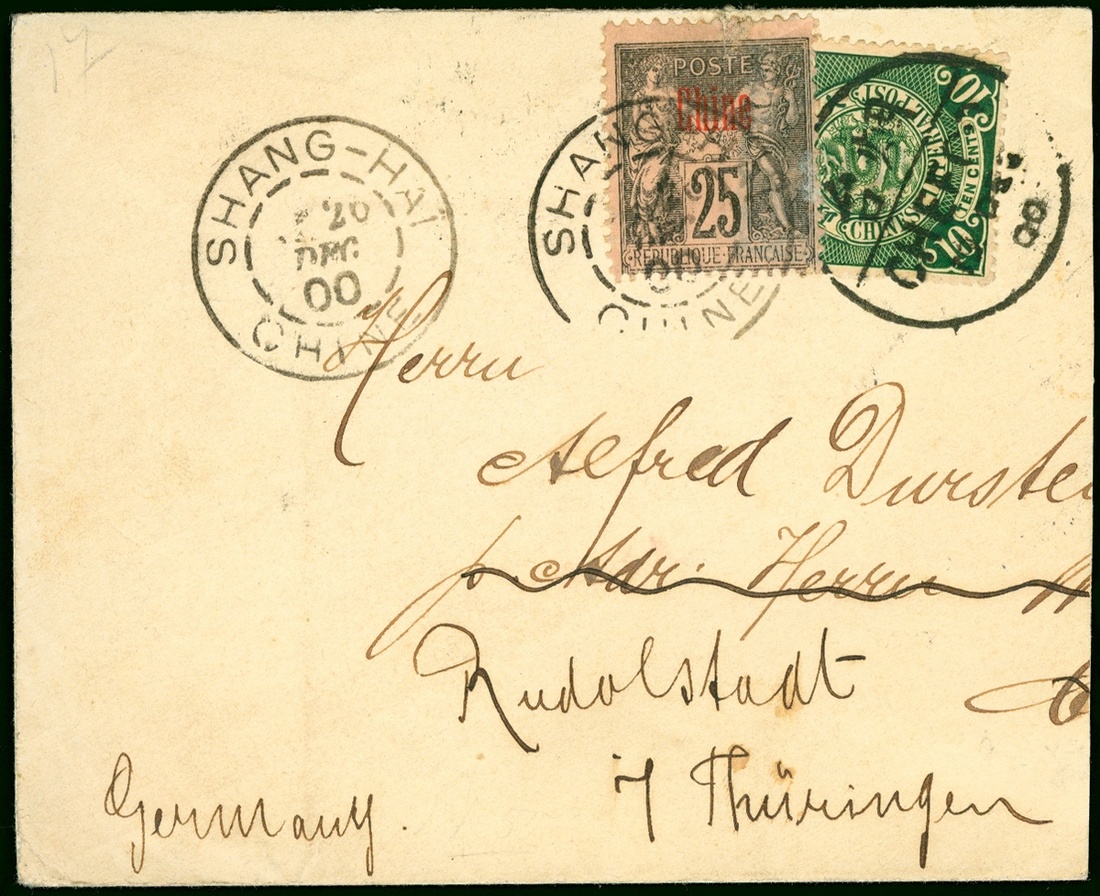 17
SHANG-HAÏ
20
DEC
00
CHINE
SHANG
00
CHINE
POSTE
Chine
25
RÉPUBLIQUE FRANÇAISE
10
TEN CENTS
10
8
Herrn
Alfred Durste
p. Adr. Herrn
Rudolstadt
i/ Thüringen
Germany.